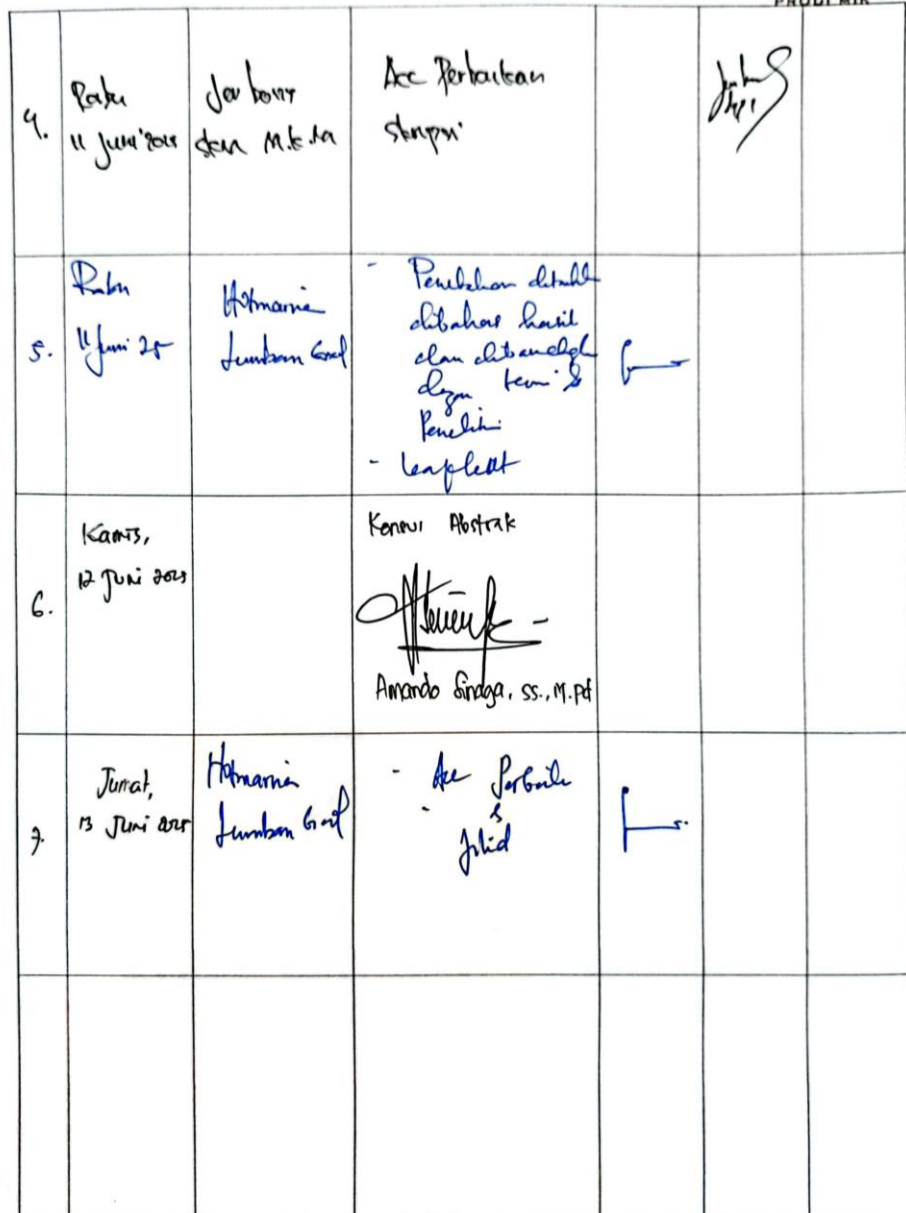 PRODI MIK
4.
Rabu
11 Juni 2025
Acc Perbaikan
skripsi
5.
Rabu
11 Juni 25
Hotmarina
Lumban Gaol
-
dibahas hasil
dan
dengan teori &
Peneliti
- leaflet
6.
Kamis,
12 Juni 2025
Konsul Abstrak
Amando Sinaga, SS., M.Pd
7.
Jumat,
13 Juni 2025
Hotmarina
Lumban Gaol
- Acc Perbaik
&
Jilid